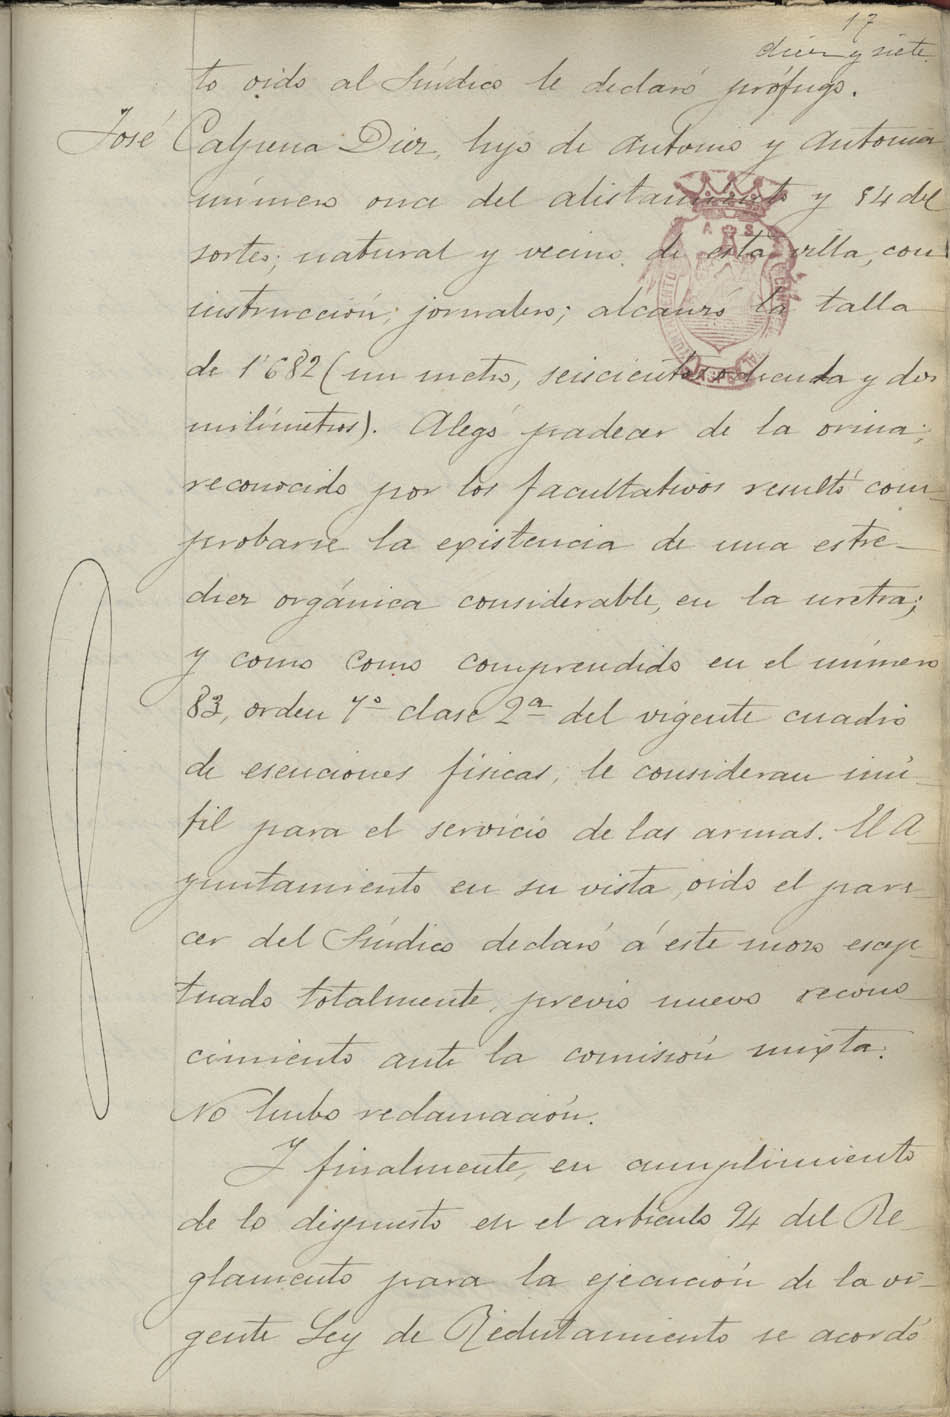 17
diez y siete
to oido al Síndico le declaró prófugo.
José Calpena Diez, hijo de Antonio y Antonia
número once del alistamiento y 84 del
sorteo; natural y vecino de esta villa, con
instrucción; jornalero; alcanzó la talla
de 1'682 (un metro, seiscientos ochenta y dos
milímetros). Alegó padecer de la orina;
reconocido por los facultativos resultó com-
probarse la existencia de una estre-
chez orgánica considerable, en la uretra;
y como como comprendido en el número
83, orden 7º clase 2ª del vigente cuadro
de esenciones físicas, le consideran inú-
til para el servicio de las armas. El A-
yuntamiento en su vista, oido el pare-
cer del Síndico declaró á este mozo escep-
tuado totalmente, previo nuevo recono-
cimiento ante la comisión mixta.
No hubo reclamación.
Y finalmente, en cumplimiento
de lo dispuesto en el artículo 94 del Re-
glamento para la ejecución de la vi-
gente Ley de Reclutamiento se acordó